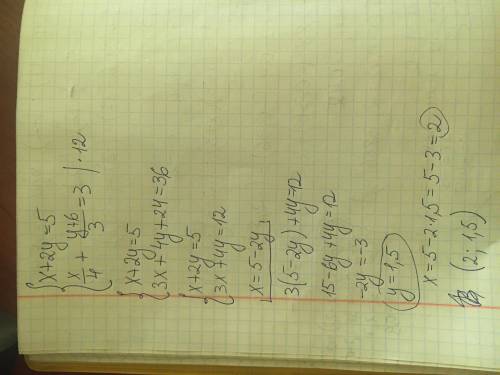 { x+2y=5
{ x/4 + (y+6)/3 = 3 | ·12
{ x+2y=5
{ 3x+4y+24=36
{ x+2y=5
{ 3x+4y=12
x=5-2y
3(5-2y)+4y=12
15-6y+4y=12
-2y=-3
y=1,5
x=5-2·1,5=5-3=2
(2; 1,5)